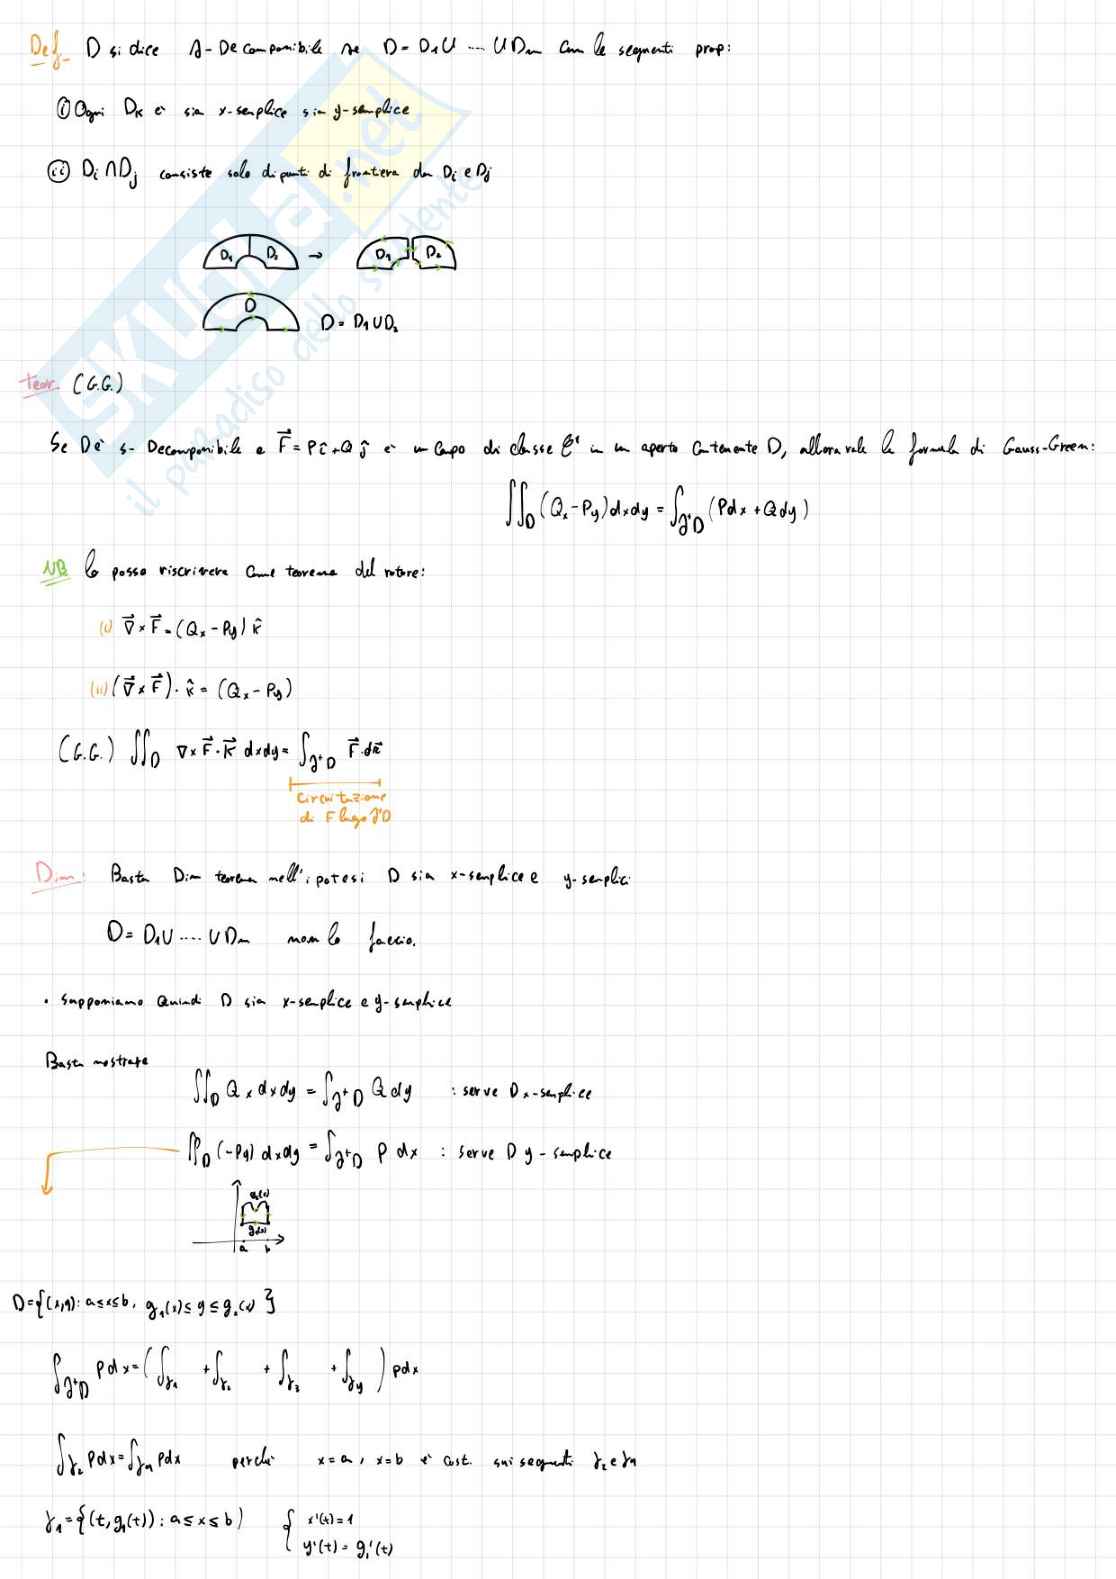 Def. D si dice s-Decomponibile se D = D₁U .... UDₘ Con le seguenti prop:
(i) Ogni Dₖ è sia x-semplice sia y-semplice
(ii) Di ∩ Dj consiste solo di punti di frontiera da Di e Dj
D₁ D₂ → D₁ D₂
D D = D₁UD₂
teor. (G.G.)
Se D è s-Decomponibile e F⃗ = Pî+Qĵ è un campo di classe C¹ in un aperto contenente D, allora vale la formula di Gauss-Green:
∬_D (Qx - Py) dxdy = ∫_∂⁺D (Pdx + Qdy)
NB lo posso riscrivere come teorema del rotore:
(i) ∇⃗ × F⃗ = (Qx - Py) k̂
(ii) (∇⃗ × F⃗) · k̂ = (Qx - Py)
(G.G.) ∬_D ∇ × F⃗ · k⃗ dxdy = ∫_∂⁺D F⃗ · dr⃗
Circuitazione
di F lungo ∂⁺D
Dim: Basta Dim teorema nell'ipotesi D sia x-semplice e y-semplice
D = D₁U .... UDₘ non lo faccio.
• Supponiamo Quindi D sia x-semplice e y-semplice
Basta mostrare
∬_D Qx dxdy = ∫_∂⁺D Q dy : serve D x-semplice
∬_D (-Py) dxdy = ∫_∂⁺D P dx : serve D y-semplice
g₂(x)
g₁(x)
a b
D = {(x,y): a≤x≤b, g₁(x) ≤ y ≤ g₂(x)}
∫_∂⁺D Pdx = (∫_γ₁ + ∫_γ₂ + ∫_γ₃ + ∫_γ₄) Pdx
∫_γ₂ Pdx = ∫_γ₄ Pdx perché x = a, x = b è cost. sui segmenti γ₂ e γ₄
γ₁ = {(t, g₁(t)): a ≤ x ≤ b) { x'(t) = 1
y'(t) = g₁'(t)
SKUOLA.net
il paradiso dello studente